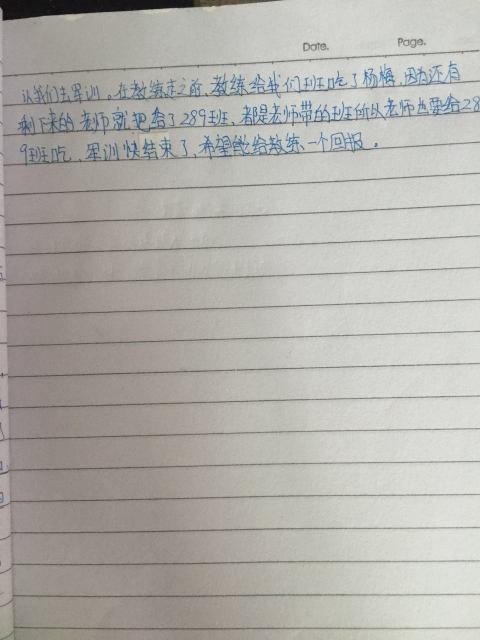 Date. Page.
认我们去军训。在教练走之前,教练给我们班吃了杨梅,因为还有
剩下来的老师就把给了289班,都是老师带的班所以老师也要给28
9班吃,军训快结束了,希望能给教练一个回报。